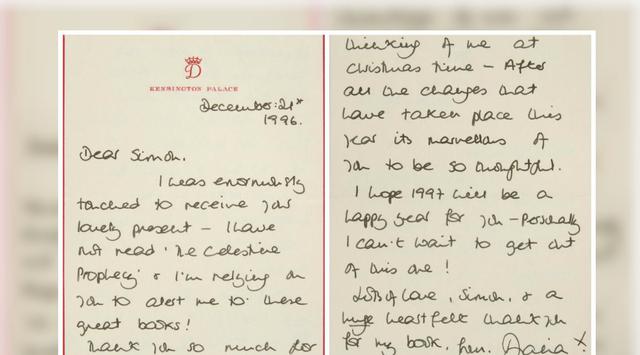 D
KENSINGTON PALACE
December: 21st
1996.
Dear Simon.
I was enormously
touched to receive your
lovely present – I have
not read 'The Celestine
Prophecy' & I'm relying on
you to alert me to these
great books!
Thank you so much for
thinking of me at
christmas time – After
all the changes that
have taken place this
year its marvellous of
you to be so thoughtful.
I hope 1997 will be a
happy year for you – Personally
I can't wait to get out
of this one!
Lots of love, Simon, & a
huge heartfelt thank you
for my book, from, Diana x.